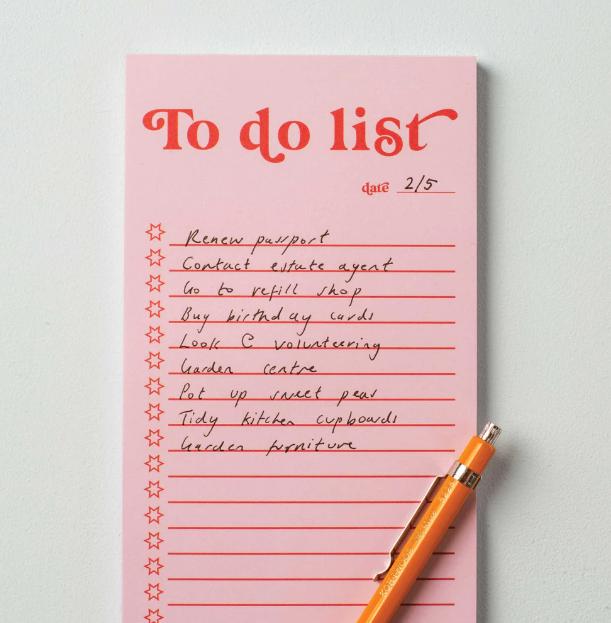 To do list
date 2/5
Renew passport
Contact estate agent
Go to refill shop
Buy birthday cards
Look @ volunteering
Garden centre
Pot up sweet peas
Tidy kitchen cupboards
Garden furniture